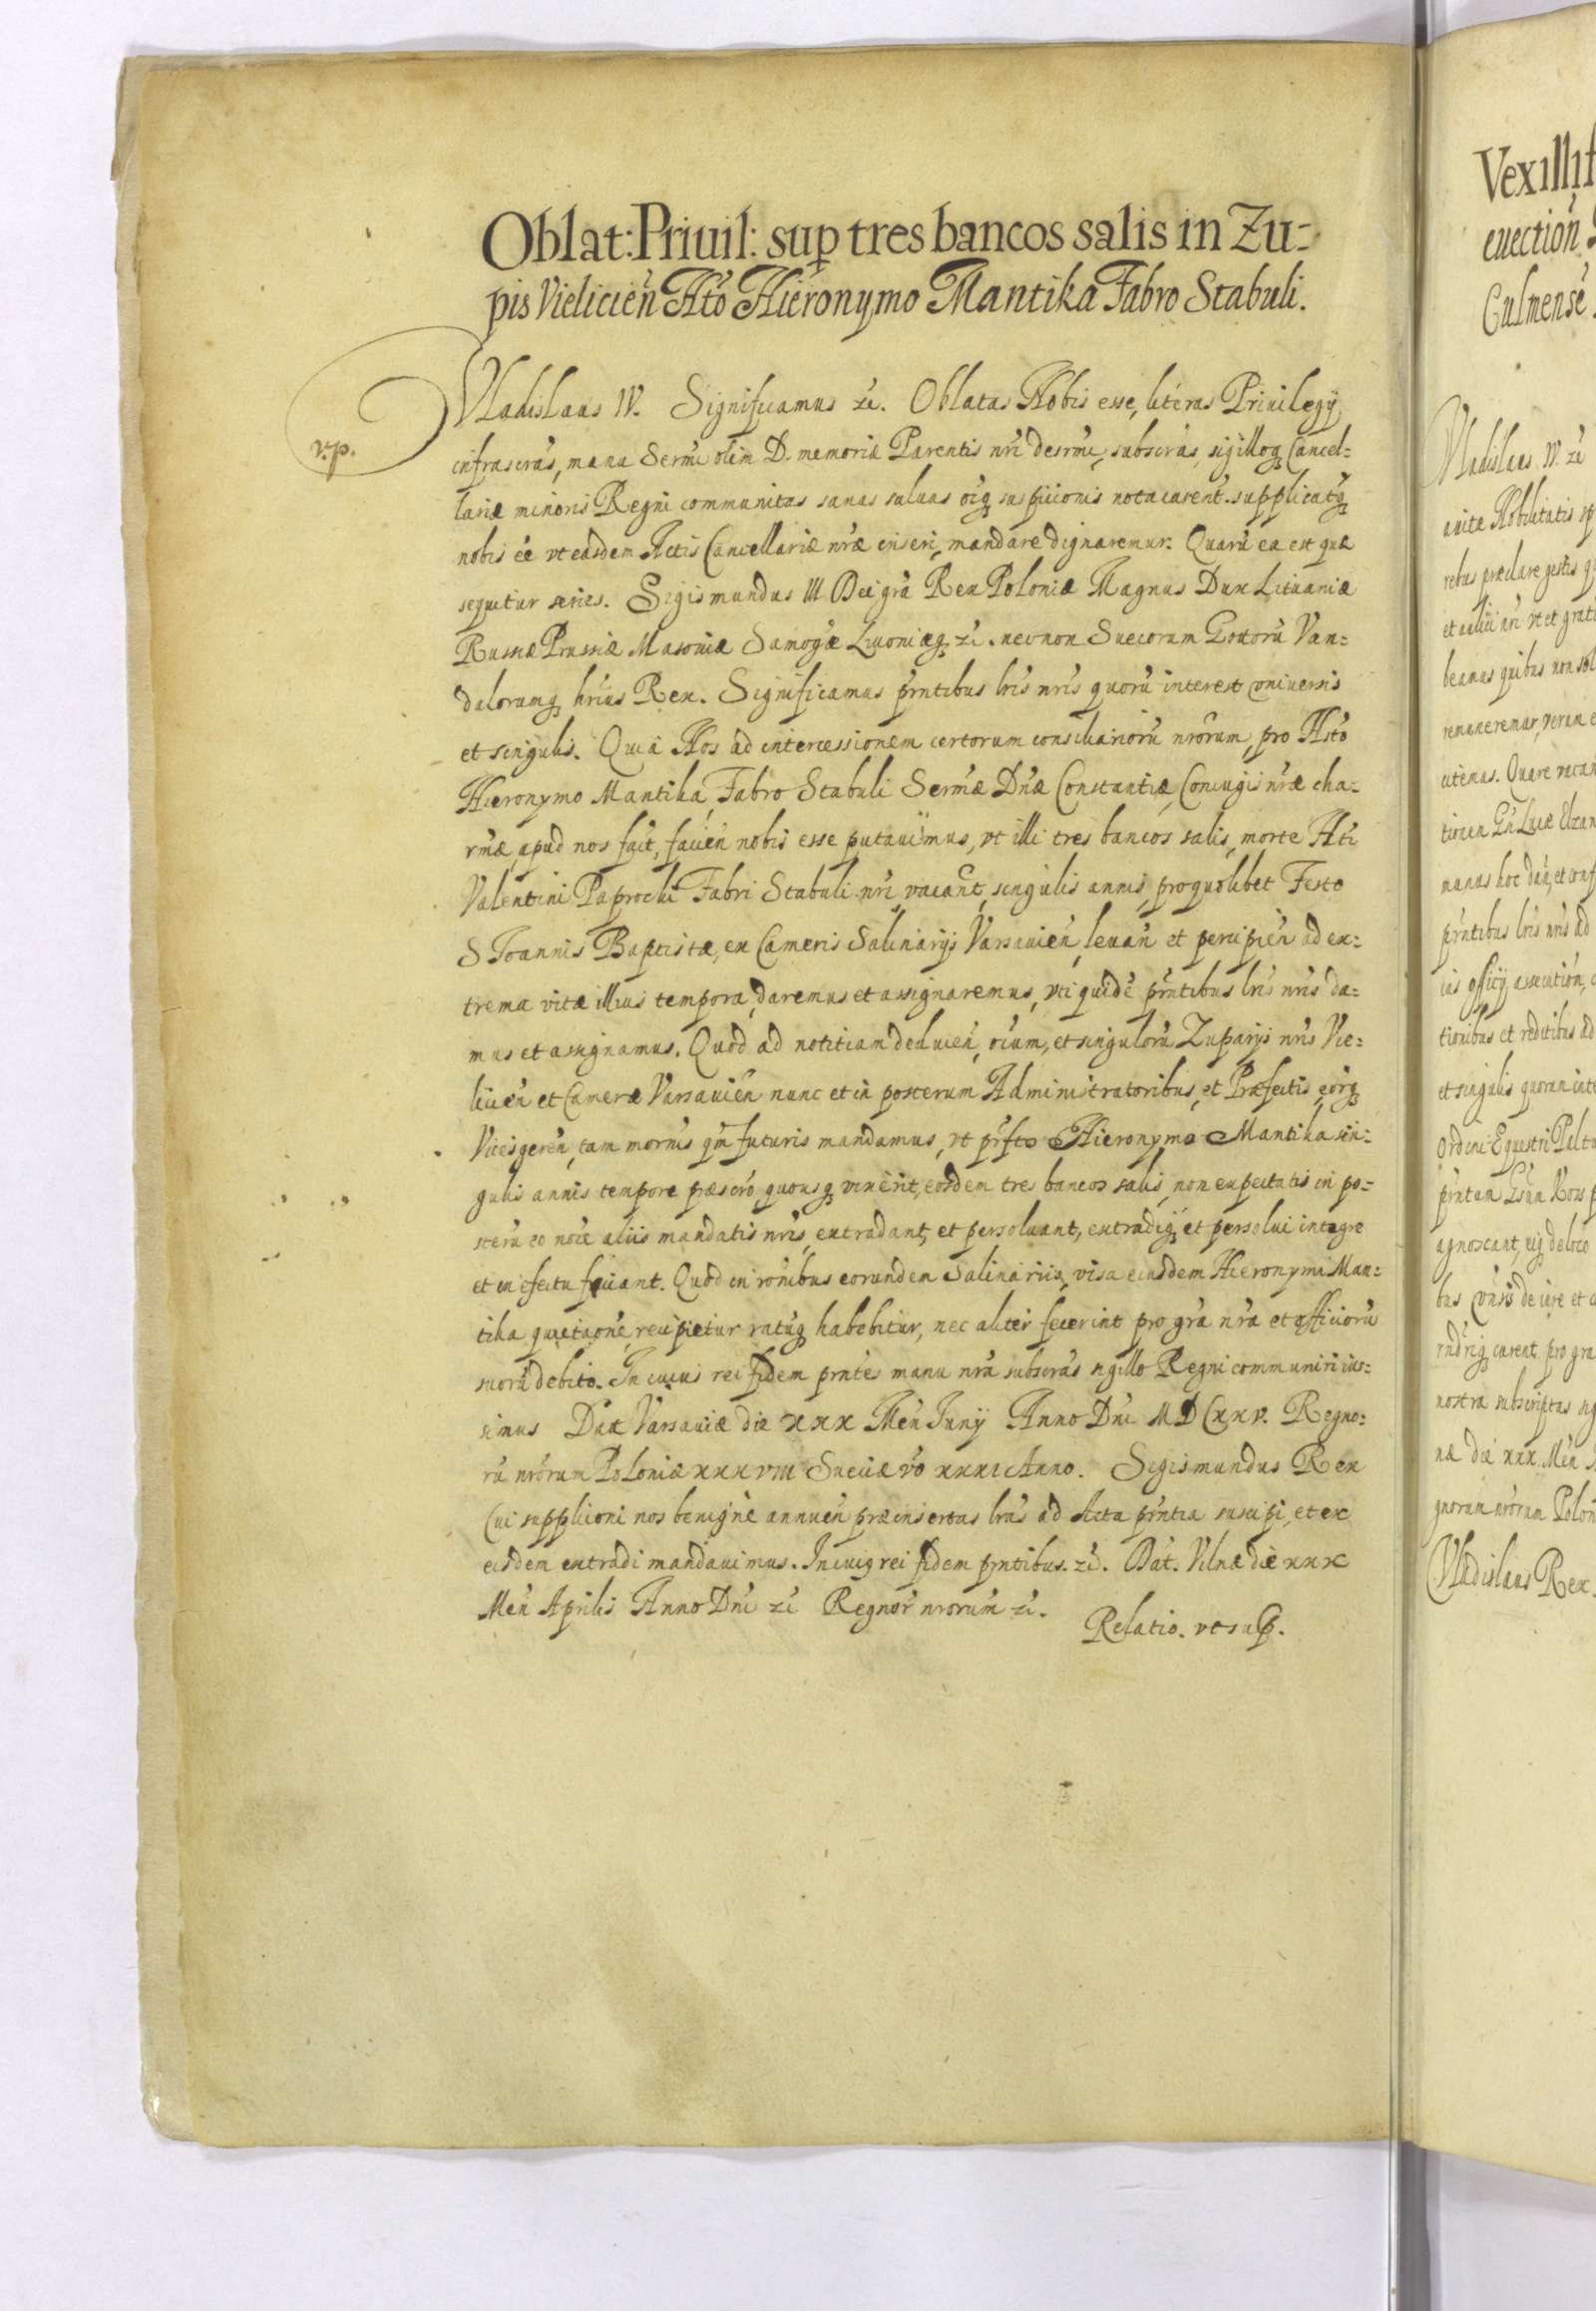 Oblat: Priuil: sup tres bancos salis in Zu=
pis Vieliciẽn Hto Hieronymo Mantika Fabro Stabuli.
v.p.
Vladislaus IV. Significamus zc. Oblatas Nobis esse, literas Priuilegij
infrascras, manu Sermi olim D. memoriæ Parentis nri desrmi, subscras, sigilloq Cancel=
lariæ minoris Regni communitas sanas saluas oiq suspicionis nota carent. supplicatq
nobis ẽe vt easdem Actis Cancellariæ nræ inseri, mandare dignaremur. Quarũ ea est quæ
sequitur series. Sigismundus III Dei grã Rex Poloniæ Magnus Dux Lituaniæ
Russiæ Prussiæ Masouiæ Samogæ Liuoniæq zc. necnon Suecorum Gottorũ Van=
dalorumq hrius Rex. Significamus prntibus lris nris quorũ interest vniuersis
et singulis. Quia Nos ad intercessionem certorum consiliariorũ nrorum, pro Hsto
Hieronymo Mantika, Fabro Stabuli Sermæ Dnæ Constantiæ, Coniugis nræ cha=
rmæ, apud nos fact, faciẽn nobis esse putauimus, vt illi tres bancos salis, morte Hti
Valentini Paprocki Fabri Stabuli nri vacant, singulis annis, pro quolibet Festo
S Joannis Baptistæ, ex Cameris Salinarijs Varsauiẽn, leuañ et percipiẽn ad ex=
trema vitæ illius tempora, daremus et assignaremus, vti quidẽ prntibus lris nris da=
mus et assignamus. Quod ad notitiam deduciẽn, oium, et singulorũ Zuparijs nris Vie=
liciẽn et Cameræ Varsauiẽn nunc et in posterum Administratoribus, et Præfectis, eorq
Vicesgerẽn, tam mornis qm futuris mandamus, vt prfto Hieronymo Mantika sin=
gulis annis tempore præscro, quousq vixerit, eosdem tres bancos salis, non expectatis in po=
sterũ eo noie aliis mandatis nris, extradant, et persoluant, extradiq et persolui integre
et in efectu faciant. Quod in ronibus eorundem Salinariis, visa eiusdem Hieronymi Man=
tika quietaone, recipietur ratũq habebitur, nec aliter fecerint pro gra nra et officiorũ
suorũ debito. In cuius rei fidem prntes manu nra subscras sigillo Regni communiri ius=
simus Dat Varsauiæ die xxx Men Junij Anno Dni MDCxxv. Regno=
rũ nrorum Poloniæ xxxviii Sueciæ vo xxxi Anno. Sigismundus Rex
Cui suppliconi nos benigne annuẽn præinsertas lras ad Acta prntia suscipi, et ex
eisdem extradi mandauimus. In cuiq rei fidem prntibus. zc. Dat. Vilnæ die xxx
Men Aprilis Anno Dni zc Regnor nrorum zc.
Relatio. vt sup.
Vexillif
euection
Culmense
Vladislaus IV. zc
auitæ Nobilitatis
rebus præclare gestis
beamus quibus non sol
remaneremur, verum
citemus. Quare vacan
prntibus lris nris ad
tionibus et reditibus ad
et singulis quorum inte
Ordini Equestri
agnoscant, eiq de loco
nostra subscriptas
næ die xxx Men
gnorum nrorum Polon
Vladislaus Rex.